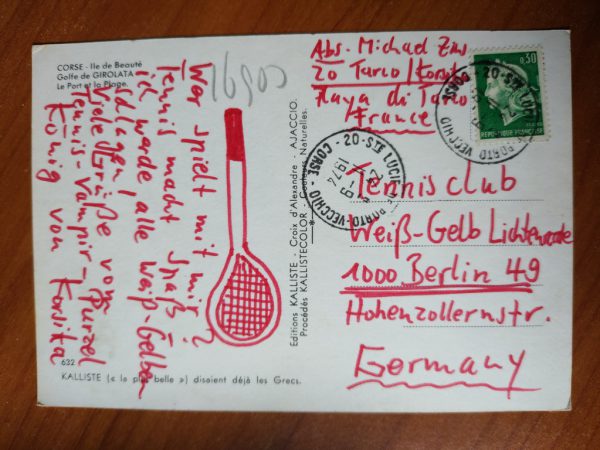 CORSE - Ile de Beauté
Golfe de GIROLATA
Le Port et la Plage.
Wer spielt mit mir?
Tennis macht Spaß
ich werde alle Weiß-Gelben
schlagen!
Viele Grüße vom
Tennis-Vampir-Purzel
König von Korsika
632
KALLISTE (« la plus belle ») disaient déjà les Grecs.
Editions KALLISTE - Croix d'Alexandre - AJACCIO.
Procédés KALLISTECOLOR - Couleurs Naturelles.
Abs. Michael
20 Tarco / Korsika
Playa di Tarco
France
0,30
REPUBLIQUE FRANÇAISE
20-STE LUCIE DE PORTO-VECCHIO - CORSE
1974
Tennisclub
Weiß-Gelb Lichtenrade
1000 Berlin 49
Hohenzollernstr.
Germany